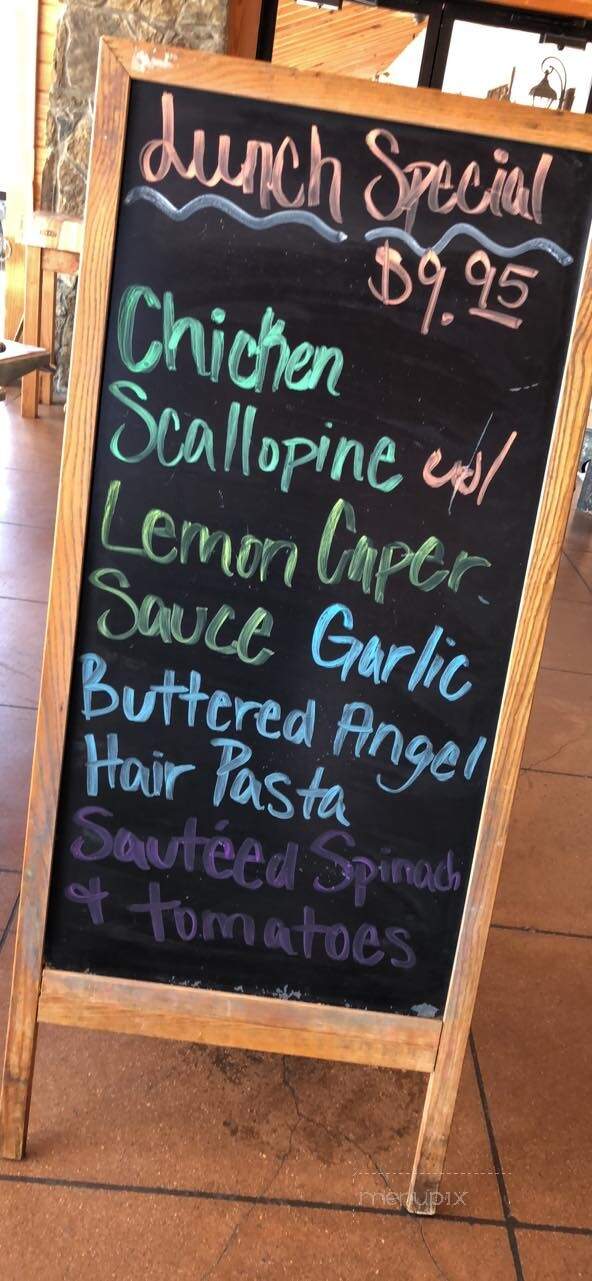 Lunch Special
$9.95
Chicken
Scallopine w/
Lemon Caper
Sauce Garlic
Buttered Angel
Hair Pasta
Sautéed Spinach
& tomatoes
menupix